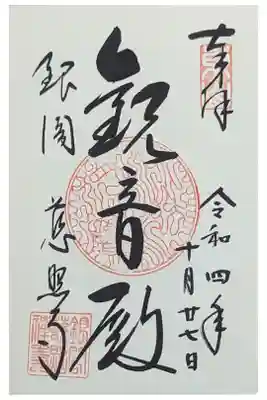 奉拝
令和四年
十月廿七日
観音殿
銀閣
慈照寺